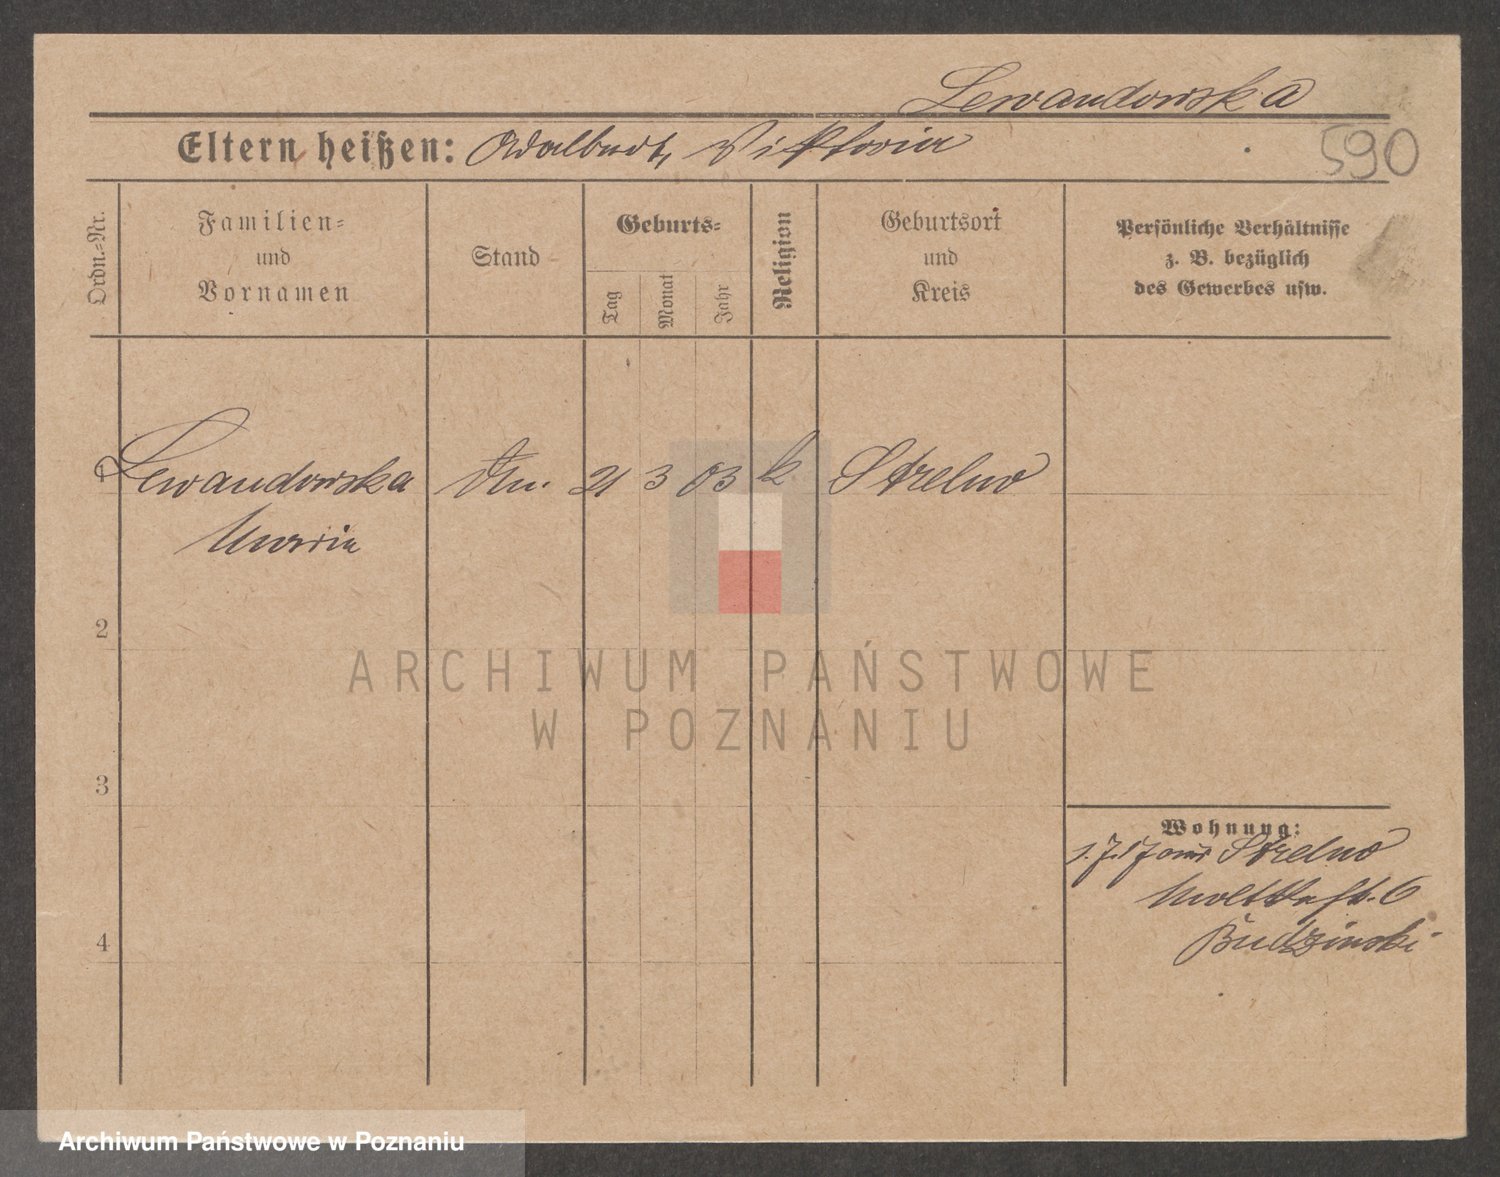 Lewandowska
Eltern heißen: Adalbert, Viktoria
590
Ordn.=Nr.
Familien=
und
Vornamen
Stand
Geburts=
Tag
Monat
Jahr
Religion
Geburtsort
und
Kreis
Persönliche Verhältnisse
z. B. bezüglich
des Gewerbes usw.
1 Lewandowska 21 3 03 k Strelno
Maria
2
ARCHIWUM PAŃSTWOWE
W POZNANIU
3
4
Wohnung:
Strelno
6
Budzinski
Archiwum Państwowe w Poznaniu